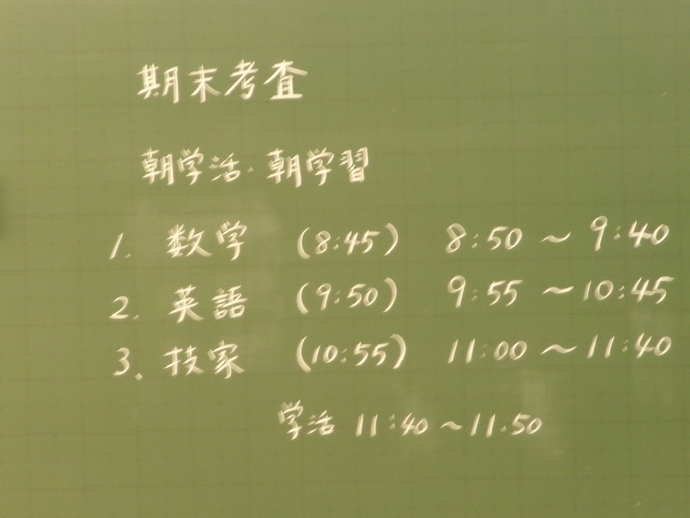 期末考査
朝学活・朝学習
1. 数学 (8:45) 8:50 ～ 9:40
2. 英語 (9:50) 9:55 ～ 10:45
3. 技家 (10:55) 11:00 ～ 11:40
学活 11:40 ～ 11.50